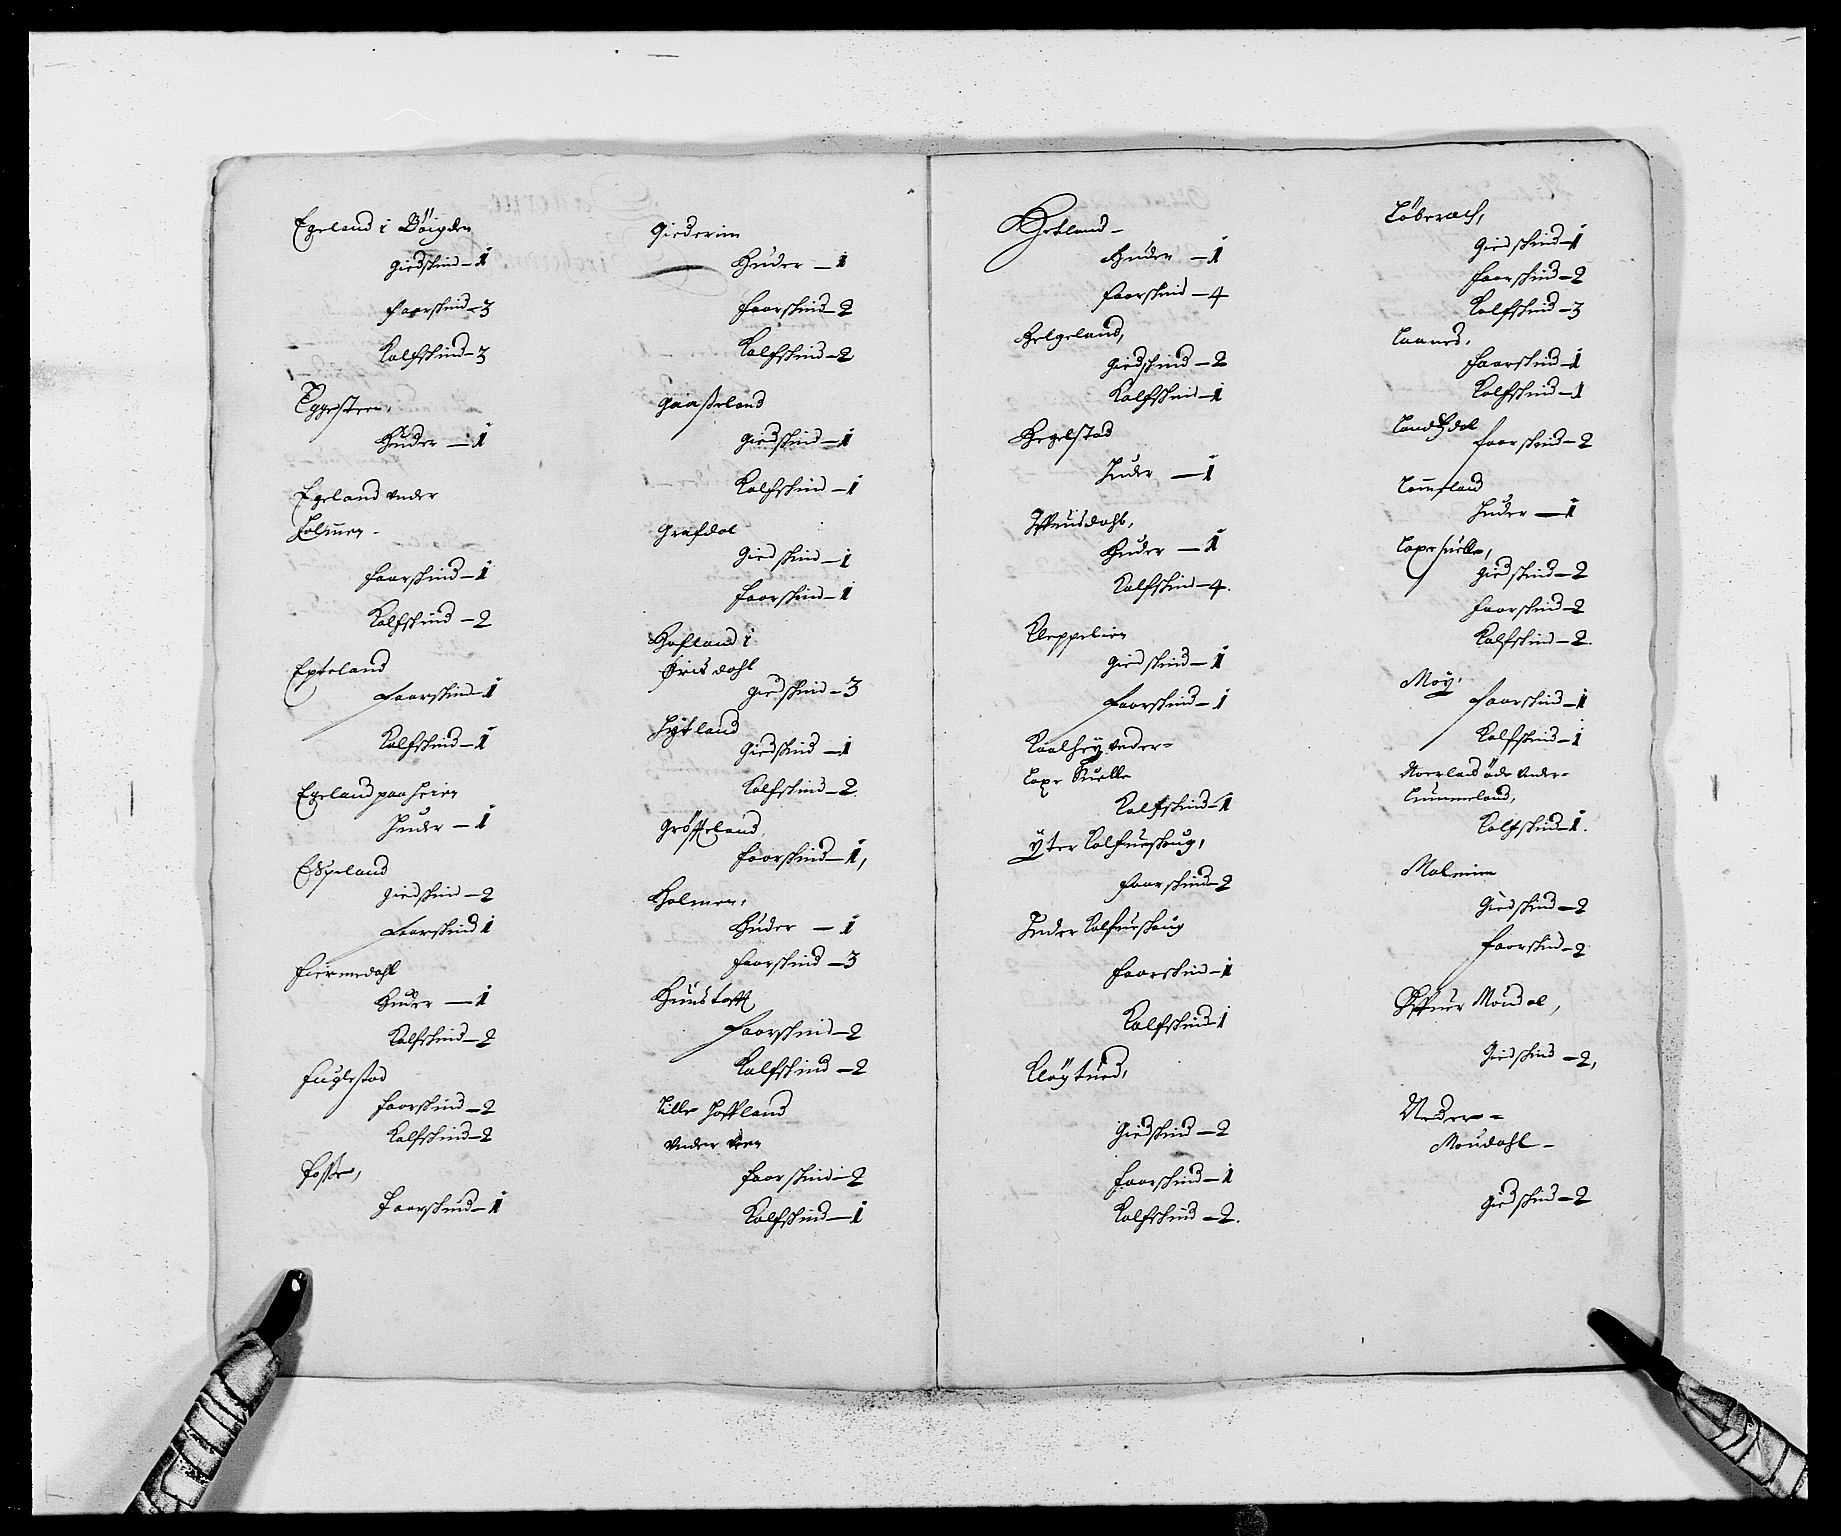 Egeland i Böigden
giedskind – 1
faarskind – 3
Kalfskind – 3
Eggesteen,
Huder – 1
Egeland under
Holmen –
faarskind – 1
Kalfskind – 2
Epteland
faarskind – 1
Kalfskind – 1
Egeland paa heien
Huder – 1
Espeland
giedskind – 2
faarskind 1
Fiermedahl
Huder – 1
Kalfskind – 2
Fuglestad
faarskind – 2
Kalfskind – 2
Fosse,
Faarskind – 1
Giederim
Huder – 1
faarskind – 2
Kalfskind – 2
Gaaseland
giedskind – 1
Kalfskind – 1
Grafdal
giedskind – 1
faarskind – 1
Hafland i
giedskind – 3
Hytland
giedskind – 1
Kalfskind – 2
Grösseland
faarskind – 1,
Holmen,
Huder – 1
faarskind – 3
Faarskind – 2
Kalfskind – 2
Lille Hofland
under
faarskind – 2
Kalfskind – 1
Hetland –
Huder – 1
faarskind – 4
Helgeland,
giedskind – 2
Kalfskind – 1
Hegelstad
Huder – 1
Huder – 1
Kalfskind – 4.
Kleppelien
giedskind – 1
faarskind – 1
under =
Kalfskind – 1
yter Kalfueshaug,
faarskind – 2
Inder Kalfueshaug
faarskind – 1
Kalfskind 1
Kløÿtued,
giedskind – 2
faarskind – 1
Kalfskind – 2.
giedskind – 1
faarskind – 2
Kalfskind – 3
Laaned,
faarskind – 1
Kalfskind – 1
faarskind – 2
Huder – 1
giedskind – 2
faarskind – 2
Kalfskind – 2.
Moÿ,
faarskind – 1
Kalfskind – 1
under =
Kalfskind – 1.
Malmim
giedskind – 2
faarskind – 2
Moudal,
giedskind – 2,
Neder =
Moudahl –
giedskind – 2